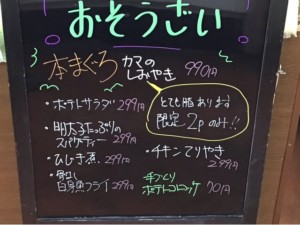 おそうざい
本まぐろ カマの
しおやき 990円
とても脂あります
限定2pのみ!!
・ポテトサラダ 299円
・明太子たっぷりの
スパゲティー 299円
・ひじき煮 299円
白身魚フライ 299円
・チキンてりやき
299円
手づくり
ポテトコロッケ 70円